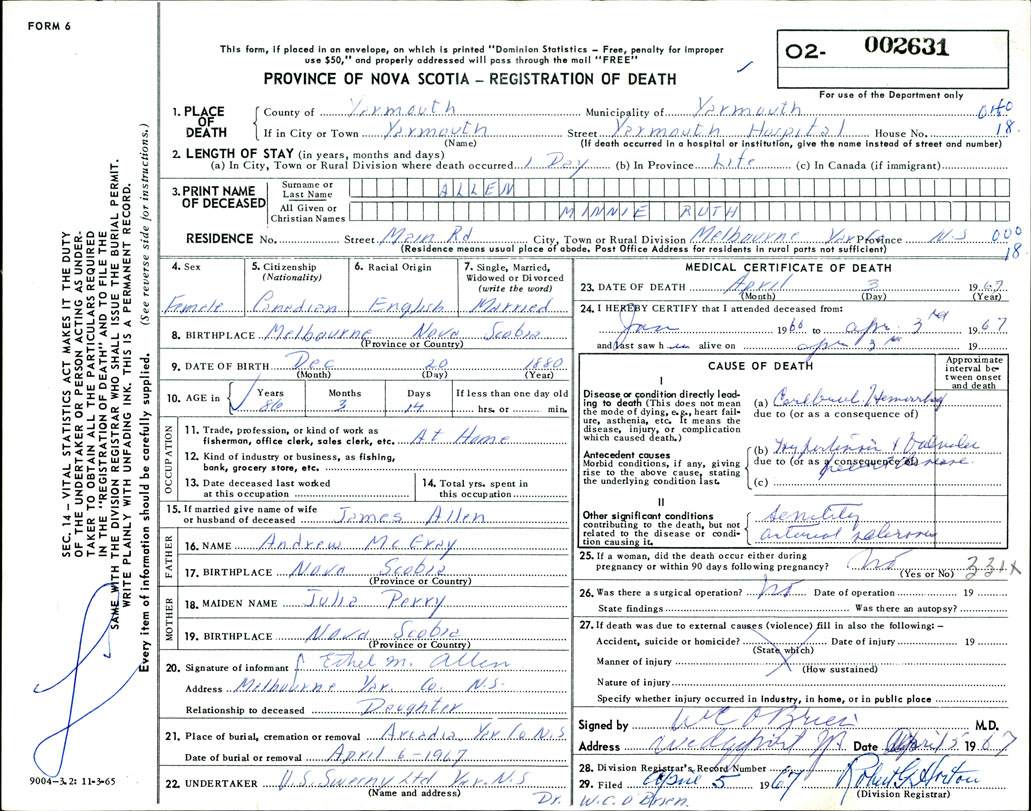 FORM 6
This form, if placed in an envelope, on which is printed "Dominion Statistics – Free, penalty for improper
use $50," and properly addressed will pass through the mail "FREE"
PROVINCE OF NOVA SCOTIA – REGISTRATION OF DEATH
O2- 002631
For use of the Department only
SEC. 14 – VITAL STATISTICS ACT MAKES IT THE DUTY
OF THE UNDERTAKER OR PERSON ACTING AS UNDER-
TAKER TO OBTAIN ALL THE PARTICULARS REQUIRED
IN THE "REGISTRATION OF DEATH" AND TO FILE THE
SAME WITH THE DIVISION REGISTRAR WHO SHALL ISSUE THE BURIAL PERMIT.
WRITE PLAINLY WITH UNFADING INK. THIS IS A PERMANENT RECORD.
Every item of information should be carefully supplied. (See reverse side for instructions.)
1. PLACE OF DEATH
County of Yarmouth Municipality of Yarmouth
If in City or Town Yarmouth Street Yarmouth Hospital House No. 18
(Name) (If death occurred in a hospital or institution, give the name instead of street and number)
2. LENGTH OF STAY (in years, months and days)
(a) In City, Town or Rural Division where death occurred 1 Day (b) In Province Life (c) In Canada (if immigrant)
3. PRINT NAME OF DECEASED
Surname or Last Name ALLEN
All Given or Christian Names MINNIE RUTH
RESIDENCE No. Street Main Rd City, Town or Rural Division Melbourne Yar Co Province N.S 000
(Residence means usual place of abode. Post Office Address for residents in rural parts not sufficient) 18
4. Sex
Female
5. Citizenship
(Nationality)
Canadian
6. Racial Origin
English
7. Single, Married,
Widowed or Divorced
(write the word)
Married
8. BIRTHPLACE Melbourne Nova Scotia
(Province or Country)
9. DATE OF BIRTH Dec 20 1880
(Month) (Day) (Year)
10. AGE in Years Months Days If less than one day old
86 3 14 hrs. or min.
OCCUPATION
11. Trade, profession, or kind of work as
fisherman, office clerk, sales clerk, etc. At Home
12. Kind of industry or business, as fishing,
bank, grocery store, etc.
13. Date deceased last worked
at this occupation
14. Total yrs. spent in
this occupation
15. If married give name of wife
or husband of deceased James Allen
FATHER
16. NAME Andrew McEray
17. BIRTHPLACE Nova Scotia
(Province or Country)
MOTHER
18. MAIDEN NAME Julia Perry
19. BIRTHPLACE Nova Scotia
(Province or Country)
20. Signature of informant Ethel M. Allen
Address Melbourne Yar. Co. N.S.
Relationship to deceased Daughter
21. Place of burial, cremation or removal Arcadia Yar Co N.S
Date of burial or removal April 6-1967
22. UNDERTAKER Sweeny Ltd Yar. N.S
(Name and address)
9004-3.2: 11-3-65
MEDICAL CERTIFICATE OF DEATH
23. DATE OF DEATH April 3 1967
(Month) (Day) (Year)
24. I HEREBY CERTIFY that I attended deceased from:
Jan 1966 to Apr. 3rd 1967
and last saw h er alive on Apr 3rd 19
CAUSE OF DEATH
Approximate
interval be-
tween onset
and death
I
Disease or condition directly lead-
ing to death (This does not mean
the mode of dying, e.g., heart fail-
ure, asthenia, etc. It means the
disease, injury, or complication
which caused death.)
(a) Cerebral Hemorrhage
due to (or as a consequence of)
Antecedent causes
Morbid conditions, if any, giving
rise to the above cause, stating
the underlying condition last.
(b) Hypertension + Valvular
due to (or as a consequence of) disease
(c)
II
Other significant conditions
contributing to the death, but not
related to the disease or condi-
tion causing it.
Senility
arterial sclerosis
25. If a woman, did the death occur either during
pregnancy or within 90 days following pregnancy? No
(Yes or No) 331X
26. Was there a surgical operation? No Date of operation 19
State findings Was there an autopsy?
27. If death was due to external causes (violence) fill in also the following: –
Accident, suicide or homicide? Date of injury 19
(State which)
Manner of injury
(How sustained)
Nature of injury
Specify whether injury occurred in industry, in home, or in public place
Signed by W C O'Brien M.D.
Address Date April 5 1967
28. Division Registrar's Record Number
29. Filed April 5 1967 Robert G Horton
(Division Registrar)
Dr. W.C. O'Brien.